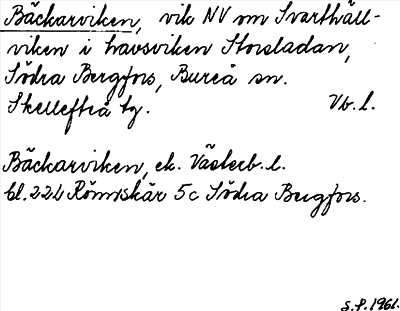 Bäckarviken, vik NV om Svarthäll-
viken i havsviken Storsladan,
Södra Bergfors, Bureå sn.
Skellefteå tg. Vb. l.
Bäckarviken, ek. Västerb. l.
bl. 22L Rönnskär 5c Södra Bergfors.
S.P. 1961.